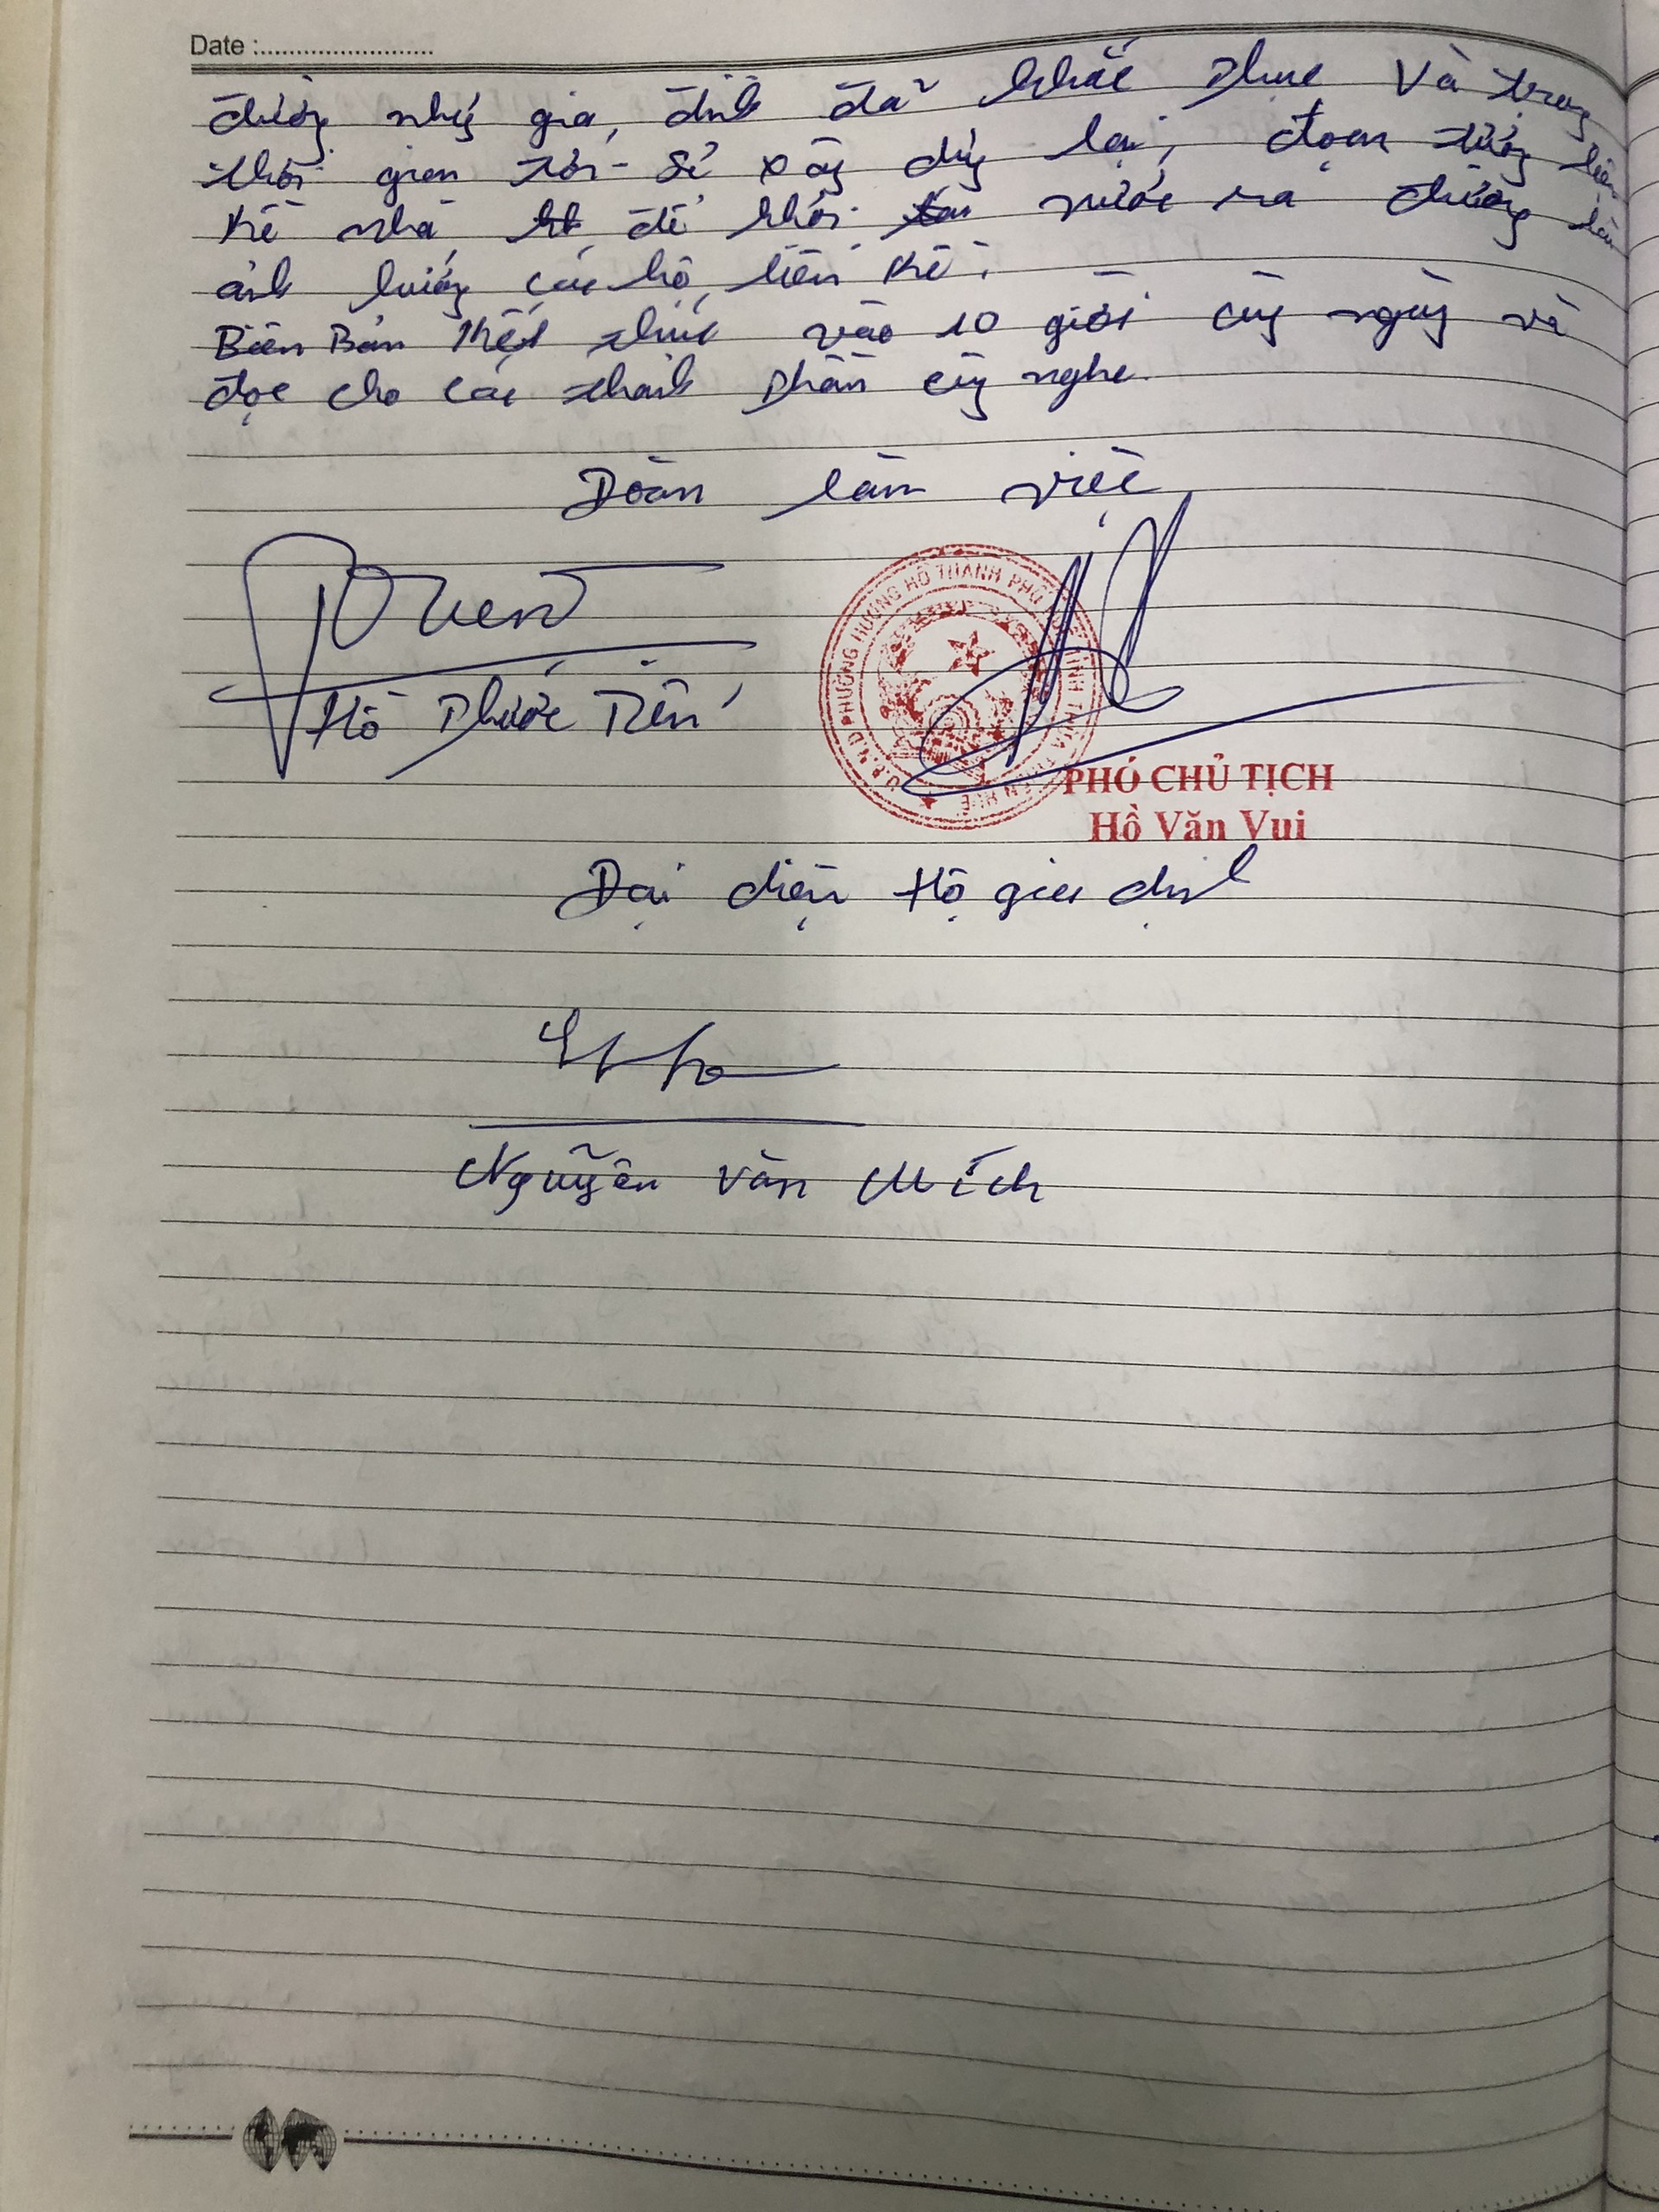 Date :........................
đường nhưng gia đình đã khắc phục và trong
thời gian tới sẽ xây dựng lại, đoạn tường liên
kề nhà để khỏi nước ra đường làm
ảnh hưởng các hộ liền kề.
Biên Bản kết thúc vào 10 giờ cùng ngày và
đọc cho các thành phần cùng nghe.
Đoàn làm việc
Hồ Phước Tiến
U.B.N.D PHƯỜNG HƯƠNG HỒ THÀNH PHỐ HUẾ TỈNH THỪA THIÊN HUẾ
PHÓ CHỦ TỊCH
Hồ Văn Vui
Đại diện Hộ gia đình
Nguyễn Văn Mích